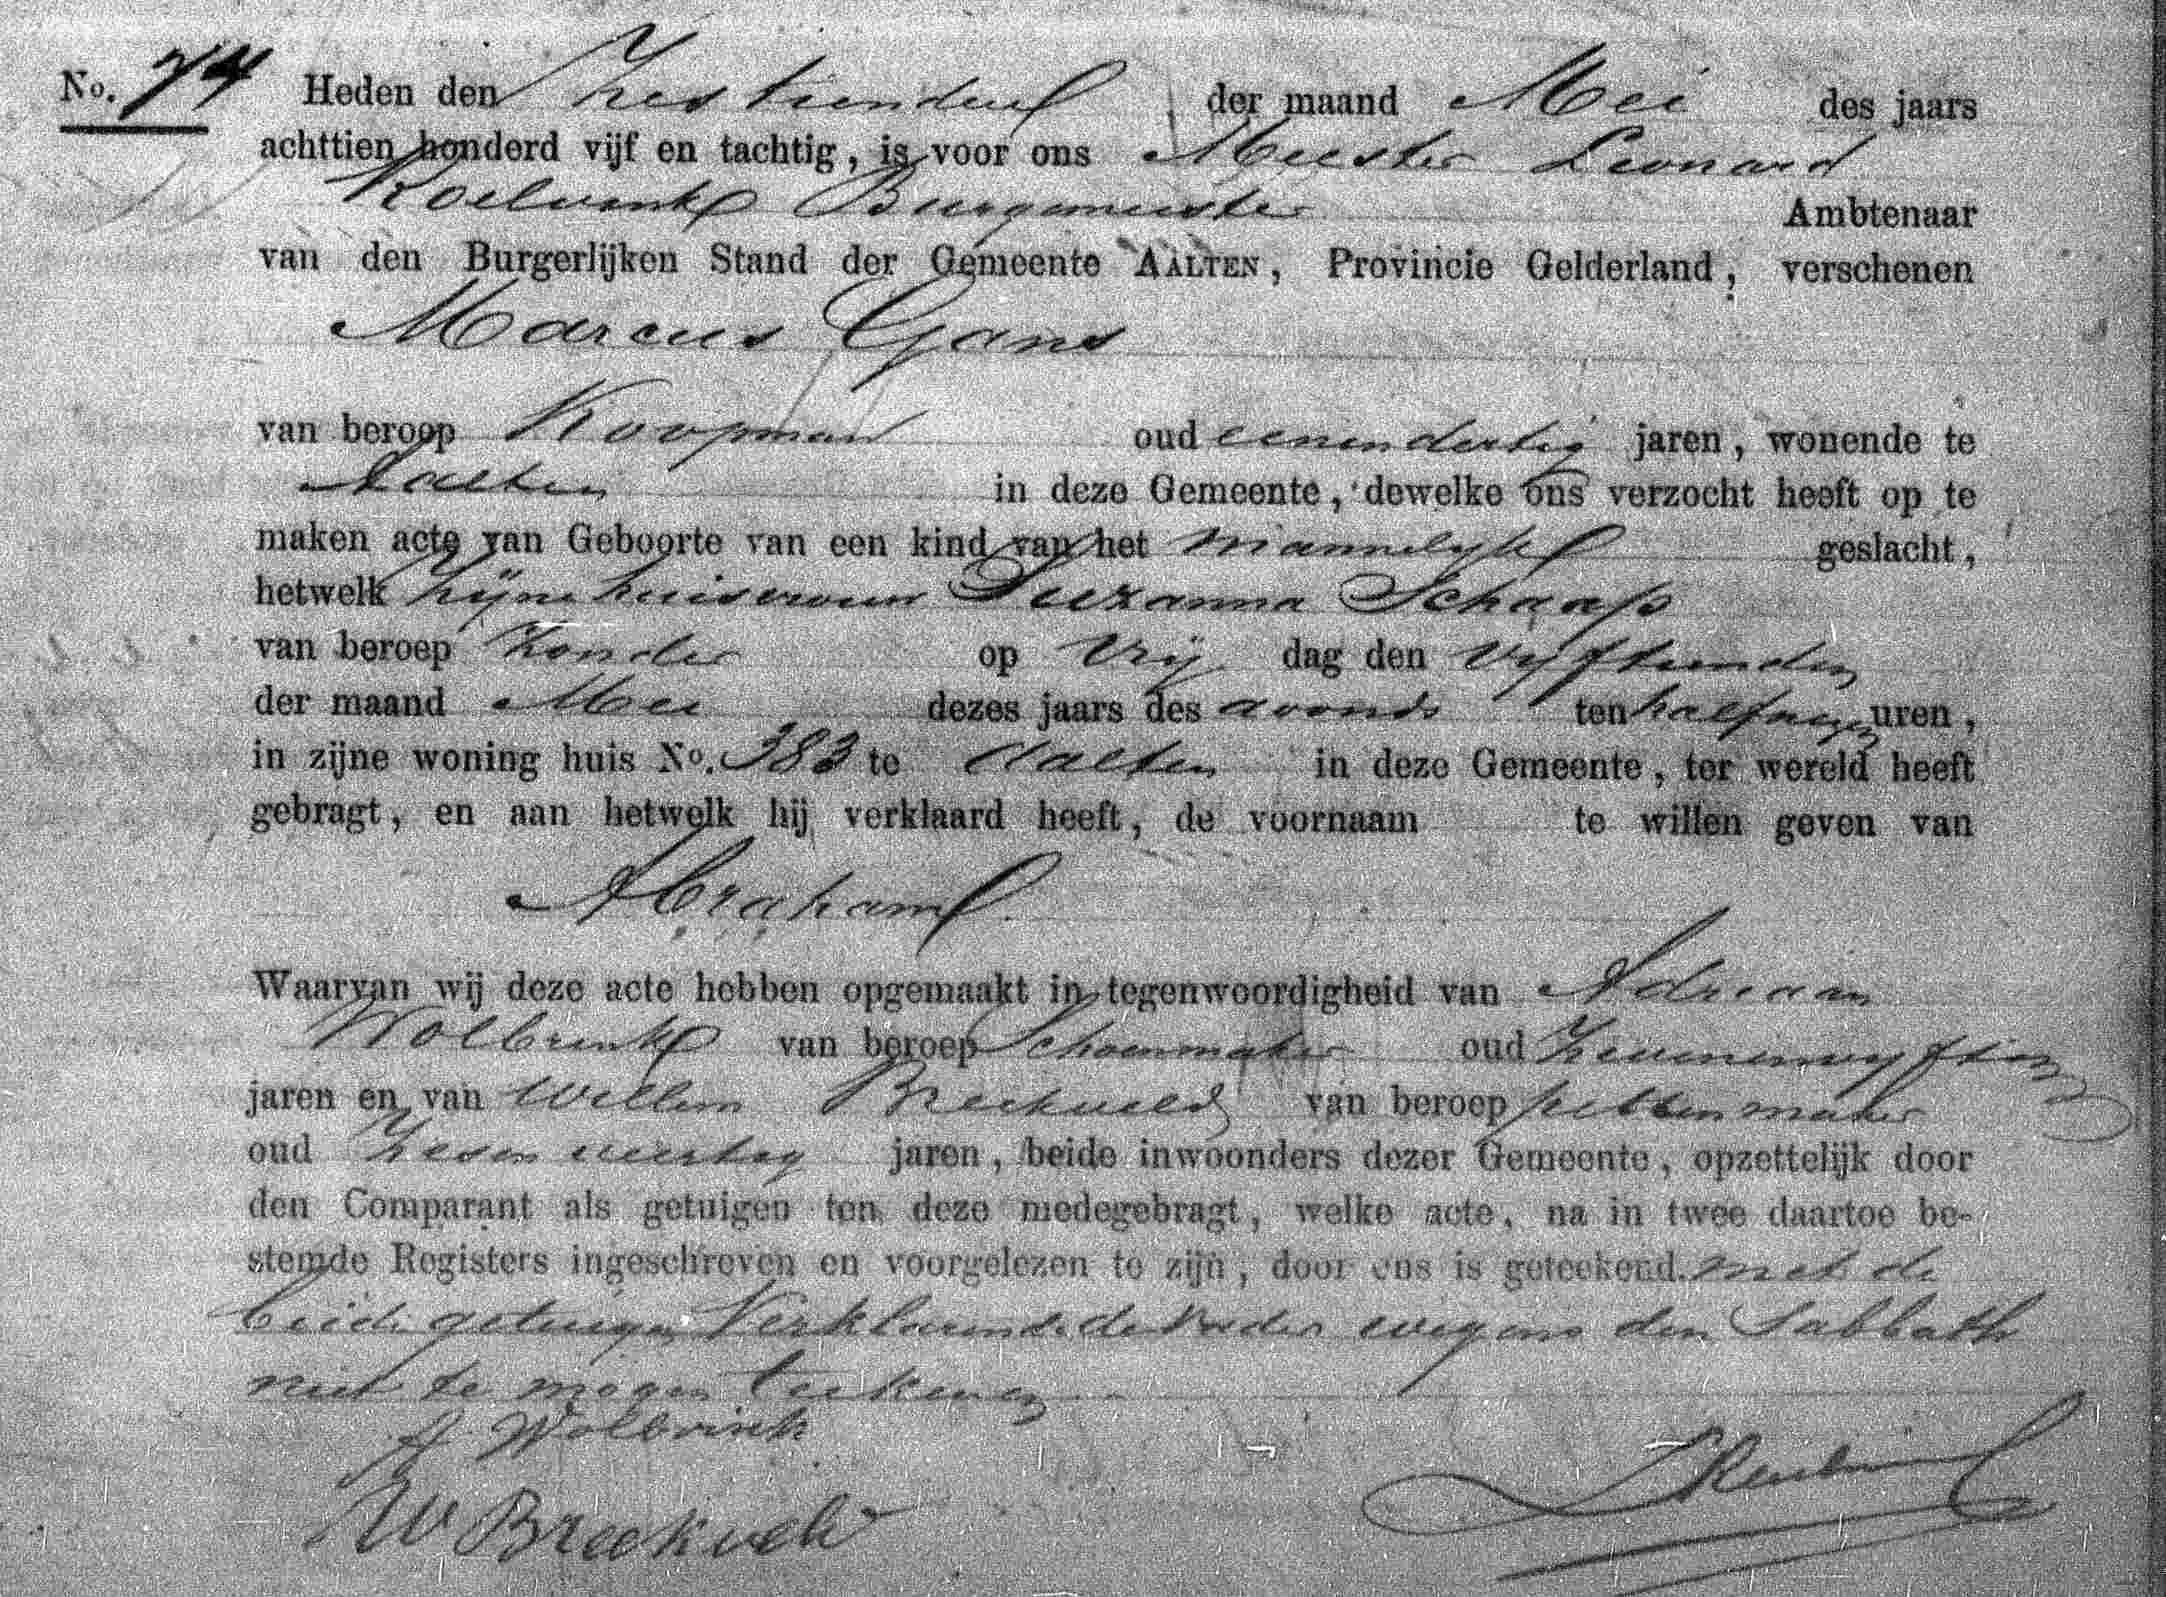 No. 74 Heden den zestienden der maand Mei des jaars
achttien honderd vijf en tachtig, is voor ons Meester Leonard
Roelvink Burgemeester Ambtenaar
van den Burgerlijken Stand der Gemeente AALTEN, Provincie Gelderland, verschenen
Marcus Gans
van beroep Koopman oud eenendertig jaren, wonende te
Aalten in deze Gemeente, dewelke ons verzocht heeft op te
maken acte van Geboorte van een kind van het mannelijk geslacht,
hetwelk zijne huisvrouw Suzanna Schaap
van beroep zonder op Vrij dag den vijftienden
der maand Mei dezes jaars des avonds ten half negen uren,
in zijne woning huis No. 383 te Aalten in deze Gemeente, ter wereld heeft
gebragt, en aan hetwelk hij verklaard heeft, de voornaam te willen geven van
Abraham
Waarvan wij deze acte hebben opgemaakt in tegenwoordigheid van Adriaan
Wolbrink van beroep Schoenmaker oud zevenenvijftig
jaren en van Willem Breekveld van beroep pettenmaker
oud zesenveertig jaren, beide inwoonders dezer Gemeente, opzettelijk door
den Comparant als getuigen ten deze medegebragt, welke acte, na in twee daartoe be-
stemde Registers ingeschreven en voorgelezen te zijn, door ons is geteekend. met de
beide getuigen Verklarende de Vader wegens den Sabbath
niet te mogen teekenen
A. Wolbrink
W Breekveld
LRoelvink